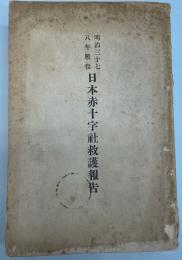 明治三十七
八年戰役
日本赤十字社救護報告